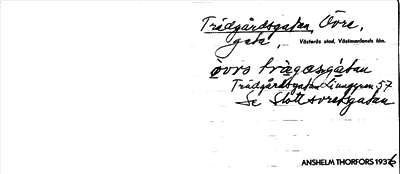 Trädgårdsgatan, Övre,
gata, Västerås stad, Västmanlands län.
övrə
Trädgårdsgatan Ljunggren 57
Se Slottsvretsgatan
ANSHELM THORFORS 1936